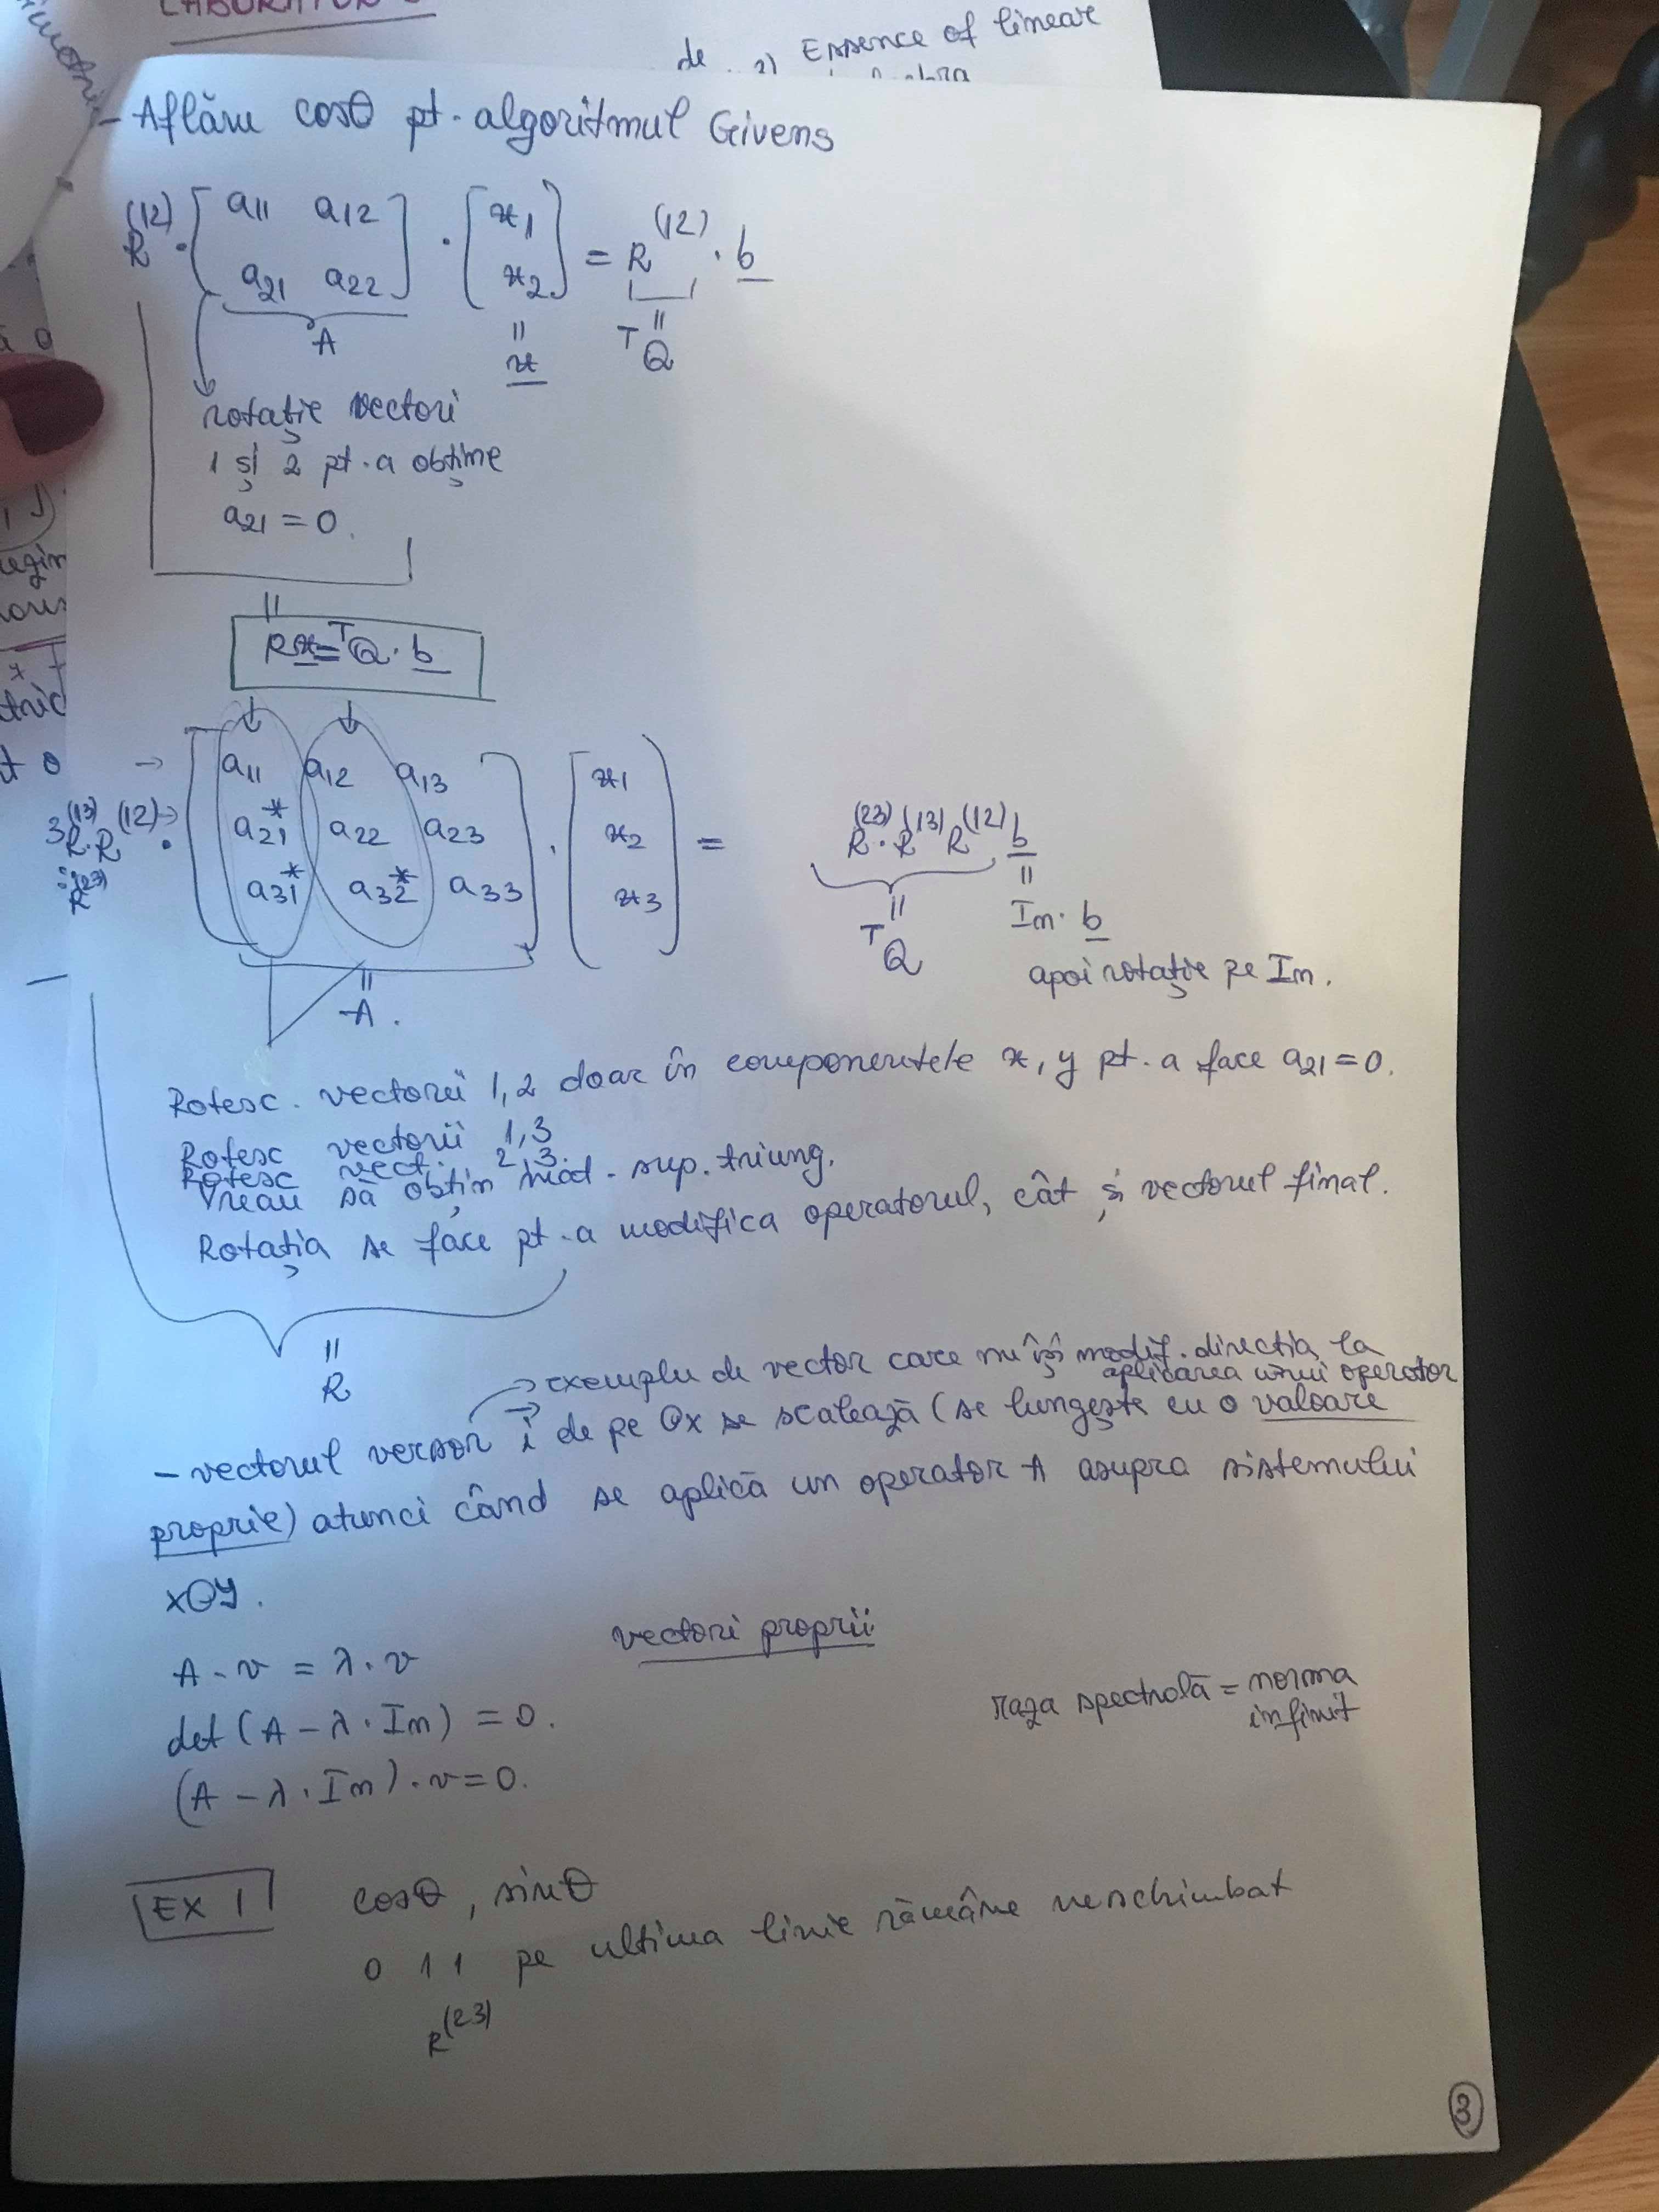 LABORATOR
de 2) Essence of linear
- Aflăm cosθ pt. algoritmul Givens
R^(12) · [a11 a12; a21 a22] · [x1; x2] = R^(12) · b
A
= x
= TQ
rotație vectori
1 și 2 pt. a obține
a21 = 0.
=
Rx = TQ · b
R^(13) · R^(12) · [a11 a12 a13; a21* a22 a23; a31* a32* a33] · [x1; x2; x3] = R^(23) · R^(13) R^(12) b
R^(23)
= TQ
= In · b
apoi rotație pe In.
= A.
Rotesc vectorii 1,2 doar în componentele x, y pt. a face a21 = 0.
Rotesc vectorii 1,3
Rotesc vect. 2,3.
Vreau să obțin mat. sup. triung.
Rotația se face pt. a modifica operatorul, cât și vectorul final.
= R
→ exemplu de vector care nu își modif. direcția la
aplicarea unui operator
- vectorul versor i de pe Ox se scalează (se lungește cu o valoare
proprie) atunci când se aplică un operator A asupra sistemului
xOy.
vectori proprii
A · v = λ · v
det (A - λ · In) = 0.
(A - λ · In) · v = 0.
raza spectrală = norma
infinit
EX 1
cosθ, sinθ
0 1 1 pe ultima linie rămâne neschimbat
R^(23)
3